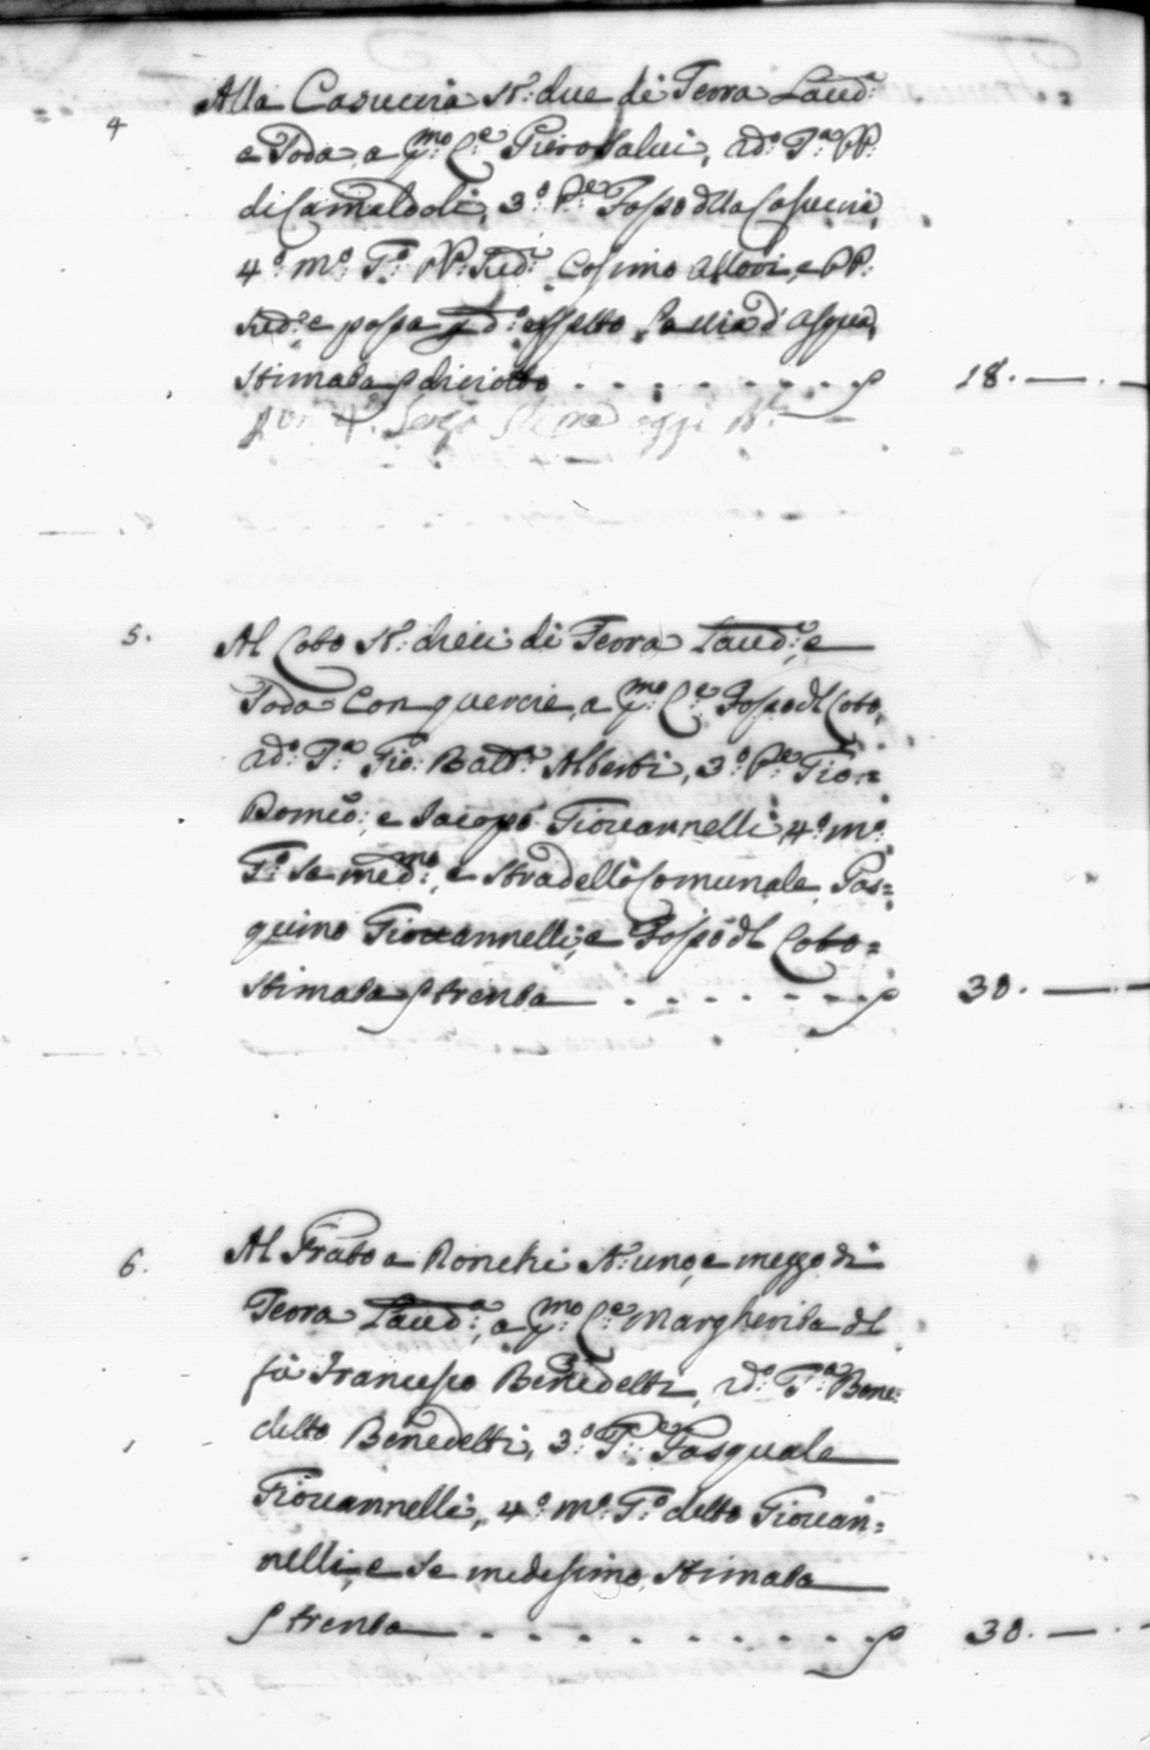 4
Alla Casuccia St: due di Terra Laud:
e Soda, a p:mo C:e Piero Salui, 2d:o T:a PP:
di Camaldoli, 3:o P:e Fosso dlla Casuccia,
4:o m:o T:o PP: Sud:i Cosimo Alloui, e PP:
Sud:i e passa p d:o effetto la uia d'asqua,
Stimata p diciotto . . . . . . . . 18. —
5.
Al Coto St: dieci di Terra Laud:a, e
Soda con quercie, a p:mo C:e Fosso dl Coto,
2d:o T:a Gio: Batt:a Alberti, 3:o P:e Gio:
Romeo: e Iacopo Giouannelli, 4:o m:o
T:o Se med:mo, e Stradello Comunale, Pas=
quino Giouannelli, e Fosso dl Coto=
Stimata p trenta . . . . . . . 30. —
6.
Al Prato a Ronchi St: uno, e mezzo di
Terra Laud:a, a p:mo C:e Margherita dl
fù Francesco Benedetti, 2d:o T:a Bene:
detto Benedetti, 3:o P:e Pasquale
Giouannelli, 4:o m:o T:o detto Giouan=
nelli, e Se medesimo, Stimata
p trenta . . . . . . . . . 30. —